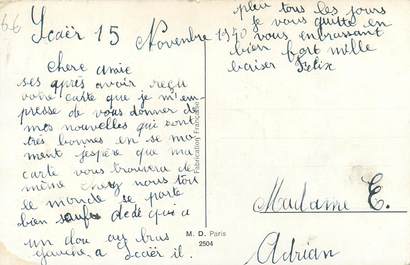 66
Scaër 15 Novembre 1940
chere amie
ses après avoir reçu
votre carte que je m'em
presse de vous donner de
mes nouvelles qui sont
très bonnes en se mo
ment j'espère que ma
carte vous trouvera de
même chez nous tou
le monde se porte
bien saufe dedé qui a
un clou au bras
a Scaër il
pleu tous les jours
je vous quitte en
vous enbrasant
bien fort mille
baiser Felix
Fabrication Française
M. D. Paris
2504
Madame E.
Adrian